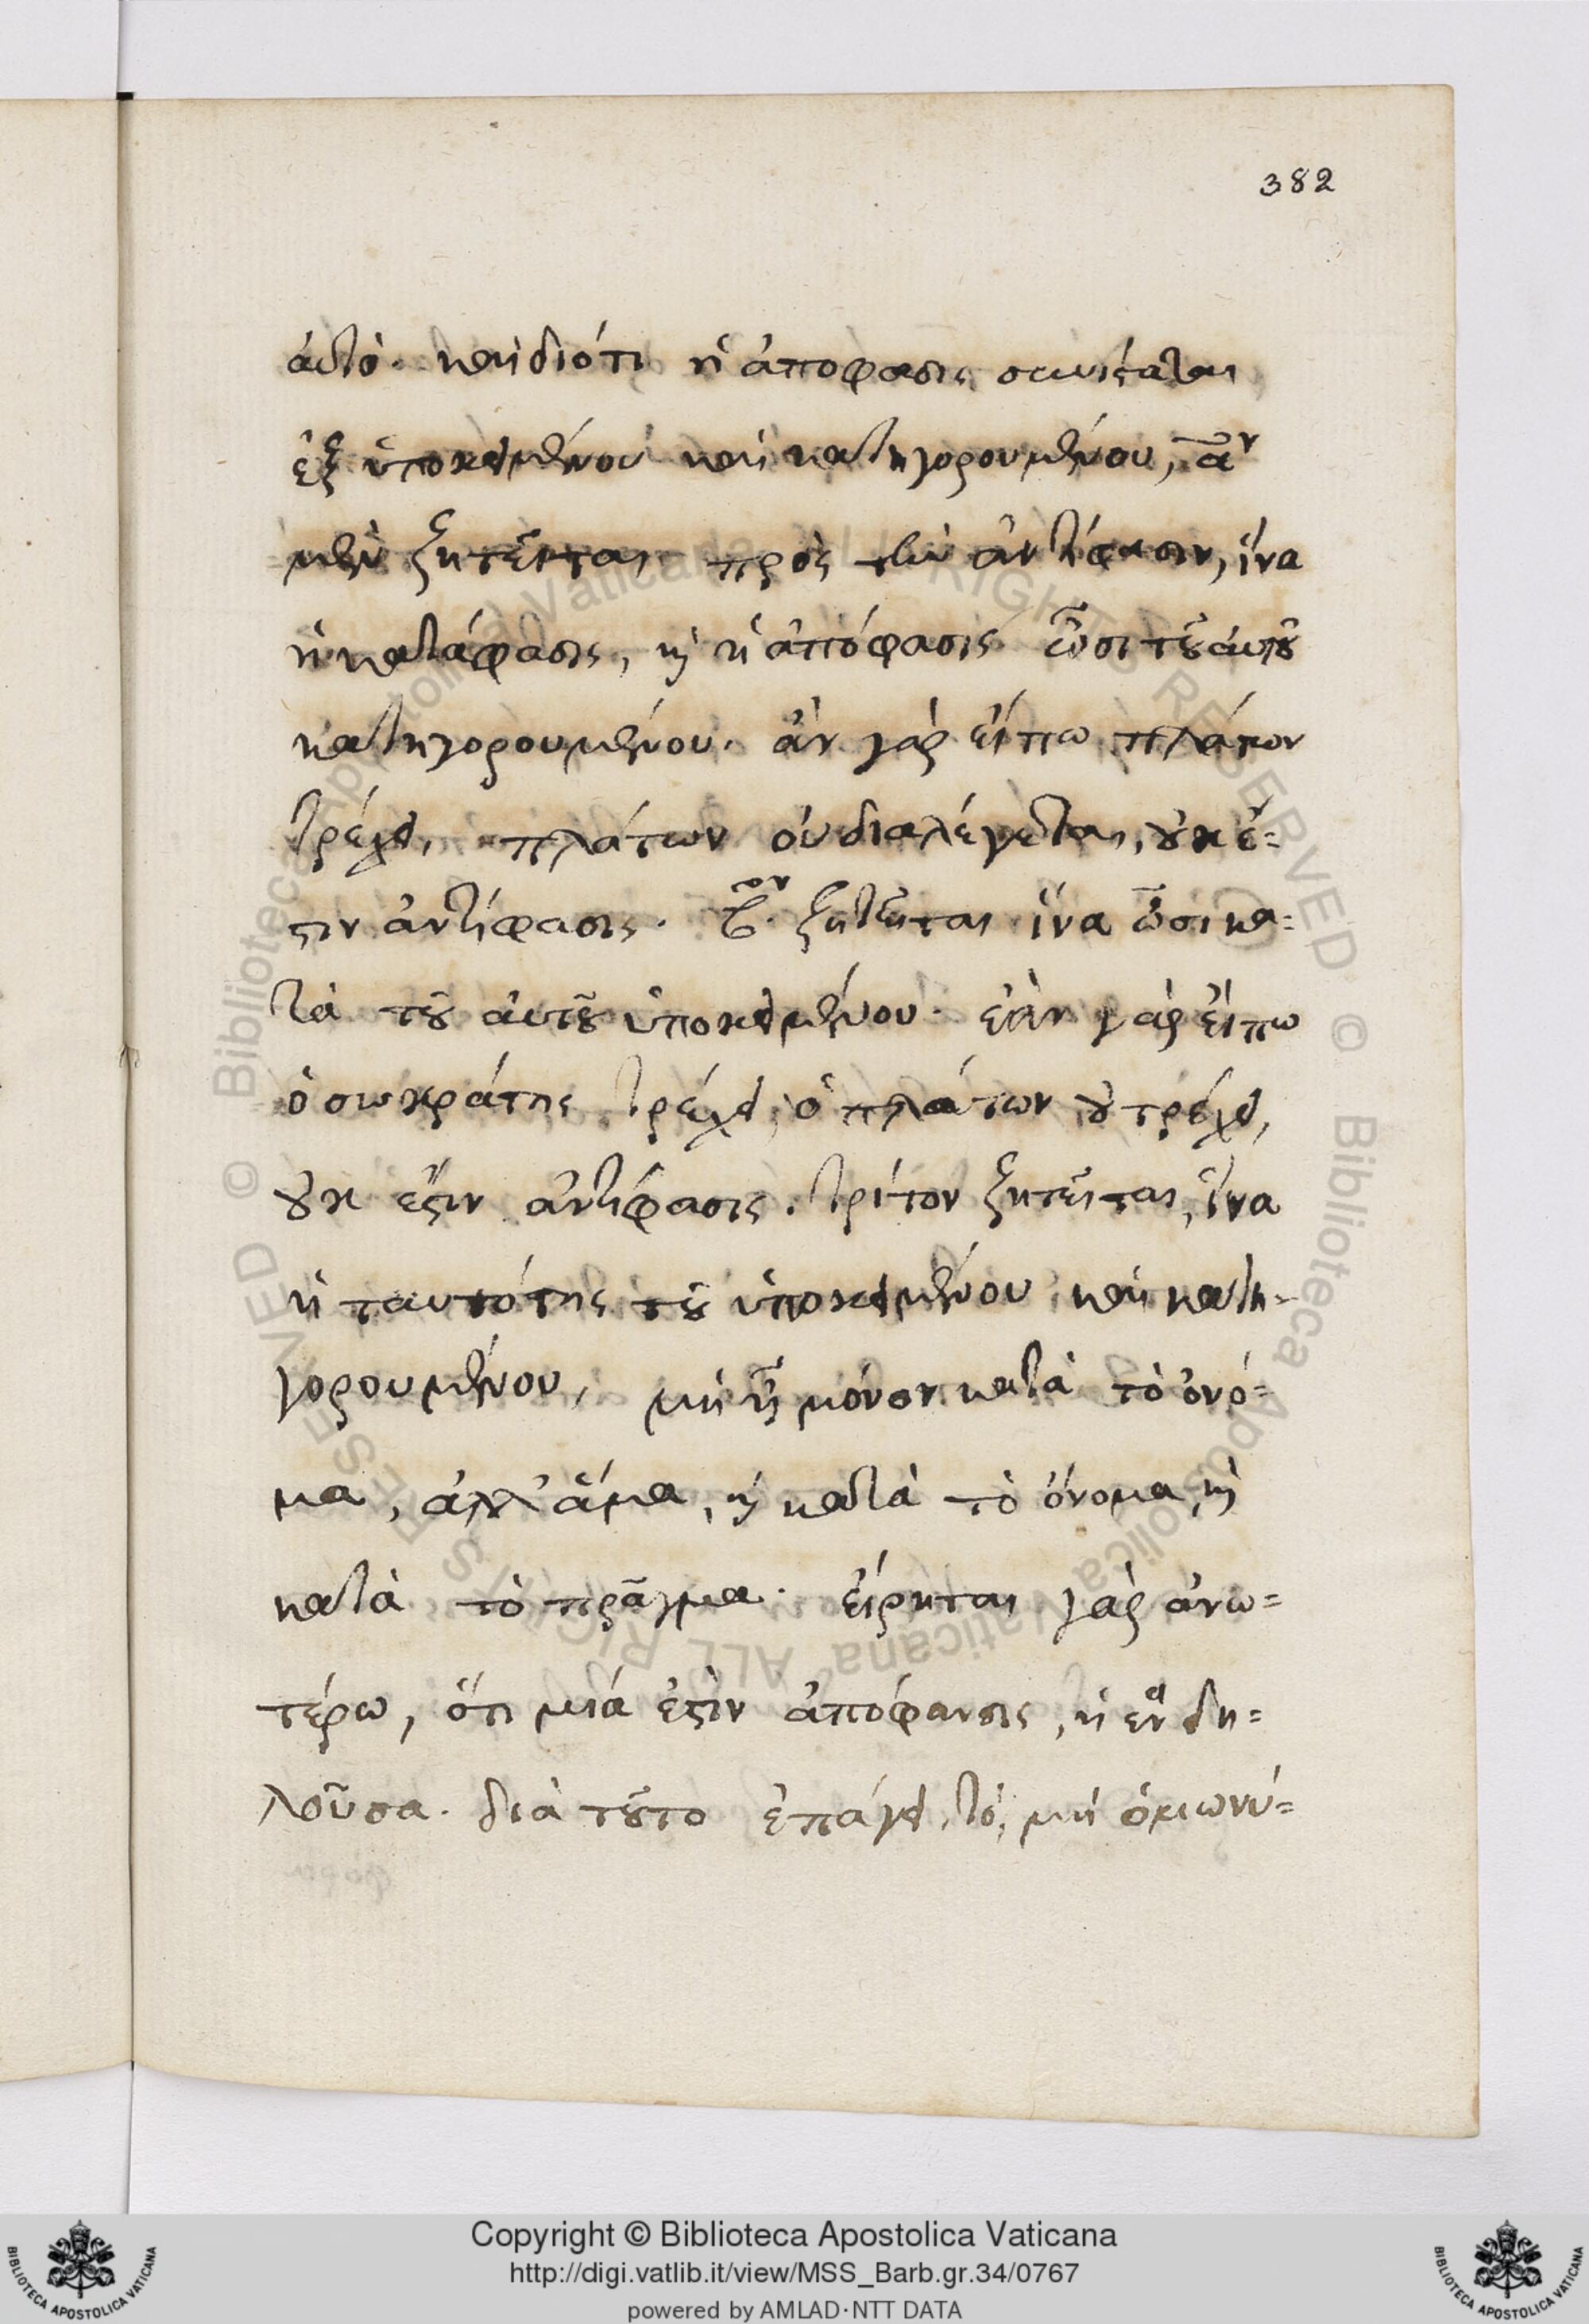 382
αὐτό. καὶ διότι ἡ ἀπόφασις συνίσταται
ἐξ ὑποκειμένου καὶ κατηγορουμένου, αον
μὲν ζητεῖται πρὸς τὴν ἀντίφασιν, ἵνα
ἡ κατάφασις, κὶ ἡ ἀπόφασις ὦσι τοῦ αὐτοῦ
κατηγορουμένου. ἂν γὰρ εἴπω πλάτων
τρέχει, πλάτων οὐ διαλέγεται, οὐκ ἔ=
στιν ἀντίφασις. βον. ζητεῖται ἵνα ὦσι κα=
τὰ τοῦ αὐτοῦ ὑποκειμένου. ἐὰν γὰρ εἴπω
ὁ σωκράτης τρέχει, ὁ πλάτων οὐ τρέχει,
οὐκ ἔστιν ἀντίφασις. τρίτον ζητεῖται, ἵνα
ἡ ταυτότης τοῦ ὑποκειμένου καὶ κατη=
γορουμένου, μὴ ᾖ μόνον κατὰ τὸ ὀνό=
μα, ἀλλ' ἅμα, κὶ κατὰ τὸ ὄνομα, κὶ
κατὰ τὸ πρᾶγμα. εἴρηται γὰρ ἀνω=
τέρω, ὅτι μιά ἐστὶν ἀπόφανσις, ἡ ἓν δη=
λοῦσα. διὰ τοῦτο ἐπάγει τό, μὴ ὁμωνύ=
© Biblioteca Apostolica Vaticana ALL RIGHTS RESERVED
Copyright © Biblioteca Apostolica Vaticana
http://digi.vatlib.it/view/MSS_Barb.gr.34/0767
powered by AMLAD·NTT DATA
BIBLIOTECA APOSTOLICA VATICANA
BIBLIOTECA APOSTOLICA VATICANA